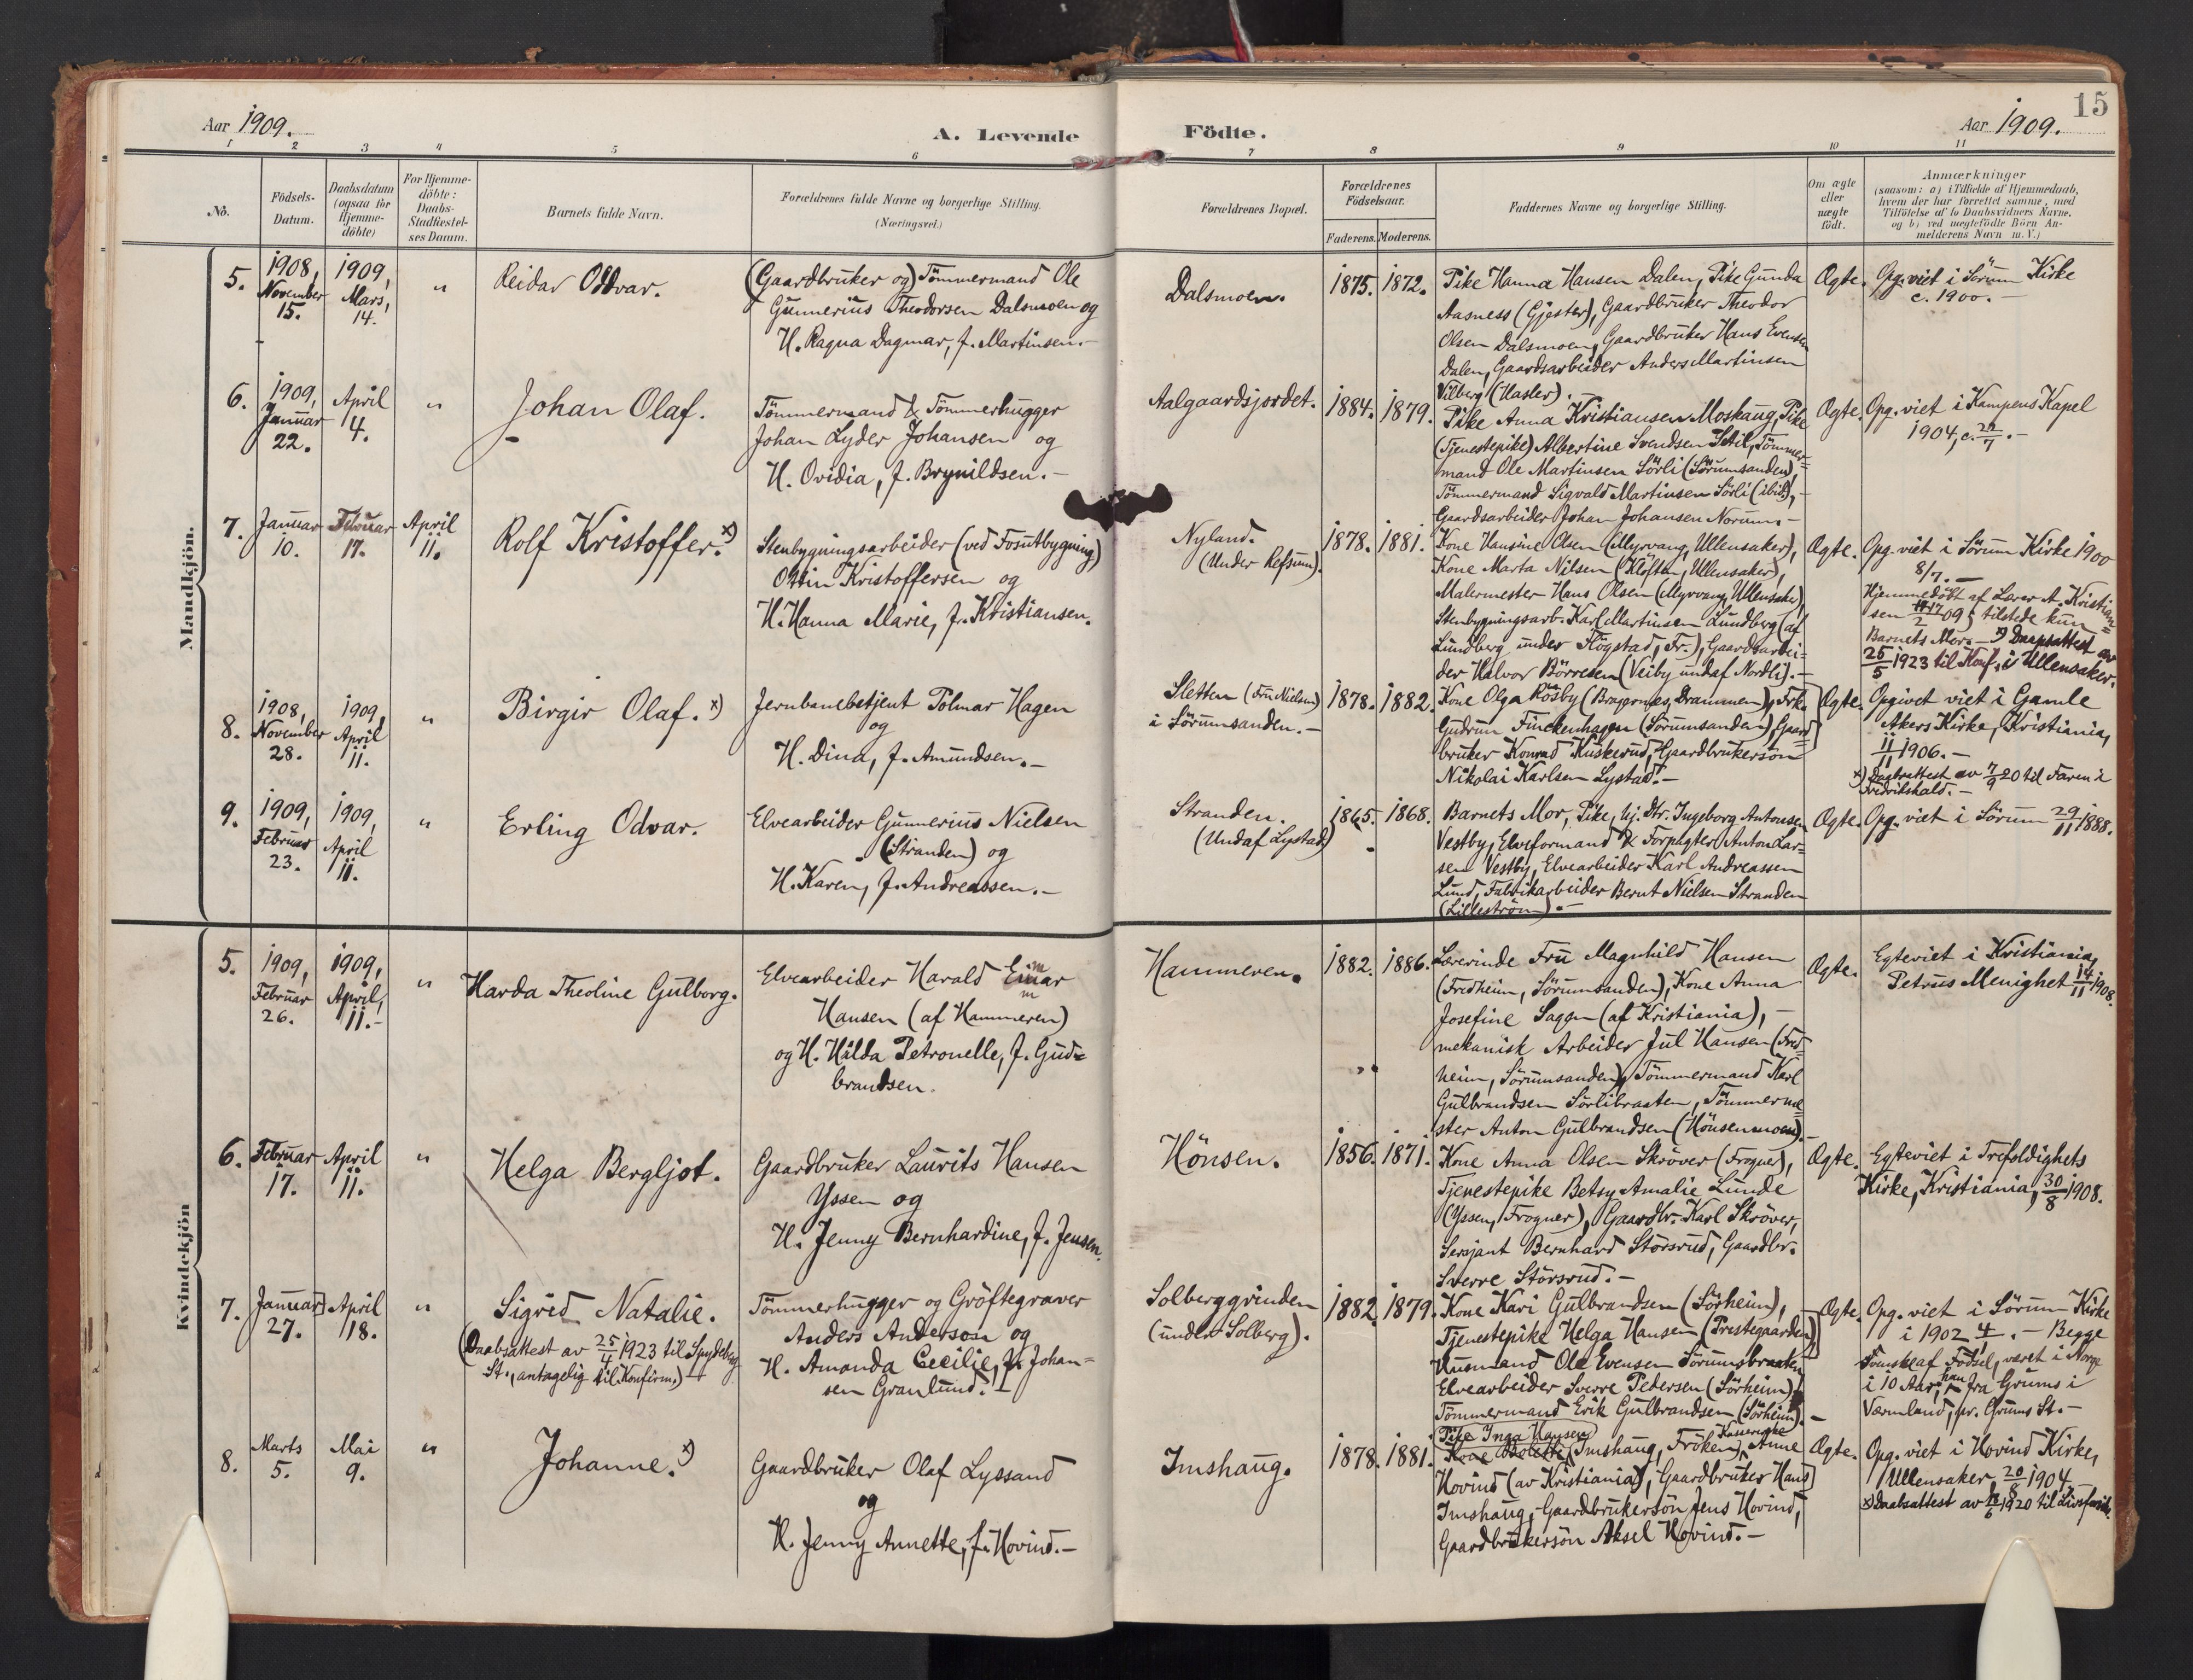 15
Aar 1909.
A. Levende Födte.
Aar 1909.
1 2 3 4 5 6 7 8 9 10 11
No.
Födsels-
Datum.
Daabsdatum
(ogsaa for
Hjemme-
döbte)
For Hjemme-
döbte:
Daabs-
Stadfæstel-
ses Datum.
Barnets fulde Navn.
Forældrenes fulde Navne og borgerlige Stilling.
(Næringsvei.)
Forældrenes Bopæl.
Forældrenes
Födselsaar.
Faderens. Moderens.
Faddernes Navne og borgerlige Stilling.
Om ægte
eller
uægte
födt.
Anmærkninger
(saasom: a) i Tilfælde af Hjemmedaab,
hvem der har forrettet samme, med
Tilföielse af to Daabsvidners Navne,
og b) ved uægtefödte Börn An-
melderens Navn m. V.)
Mandkjön.
5.
1908,
November
15.
1909,
Mars,
14.
"
Reidar Oddvar.
(Gaardbruker og) Tömmermand Ole
Gunnerius Theodorsen Dalsmoen og
H. Ragna Dagmar, f. Martinsen.-
Dalsmoen.
1875. 1872.
Pike Hanna Hansen Dalen, Pike Gunda
Aasness (Gjester), Gaardbruker Theodor
Olsen Dalsmoen, Gaardbruker Hans Evensen
Dalen, Gaardsarbeider Anders Martinsen
Vilberg (Hasler).
Ægte.
Opg. viet i Sörum Kirke
c. 1900.-
6.
1909,
Januar
22.
April
4.
"
Johan Olaf.
Tömmermand & Tömmerhugger
Johan Lyder Johansen og
H. Ovidia, f. Brynildsen.-
Aalgaardsjordet.
1884. 1879.
Pike Anna Kristiansen Moskaug, Pike
(Tjenestepike) Albertine Svendsen Stil, Tömmer=
mand Ole Martinsen Sörli (Sörumsanden),
Tömmermand Sigvald Martinsen Sörli (ibid),-
Gaardsarbeider Johan Johansen Norum.-
Ægte.
Opg. viet i Kampens Kapel
1904, c.
7.
Januar
10.
Februar
17.
April
11.
Rolf Kristoffer. x)
Stenbygningsarbeider (ved Fosutbygning)
Ottin Kristoffersen og
H. Hanna Marie, f. Kristiansen.
Nyland.
(Under Refsum).
1878. 1881.
Kone Hansine Olsen (Myrvang, Ullensaker),
Kone Marta Nilsen (Klöfta, Ullensaker),
Malermester Hans Olsen (Myrvang, Ullensaker),
Stenbygningsarb. Karl Martinsen Lundberg (af
Lundberg under Flögstad, Fr.), Gaardsarbei=
der Halvor Börresen (Veiby undaf Nordli).-
Ægte.
Opg. viet i Sörum Kirke 1900
8/7.-
Hjemmedöbt af Lærer A. Kristian=
sen 17/2 09; tilstede kun
Barnets Mor.- x) Daapsattest av
25/5 1923 til Konf. i Ullensaker.
8.
1908,
November
28.
1909,
April
11.
"
Birgir Olaf. x)
Jernbanebetjent Tolmar Hagen
og
H. Dina, f. Amundsen.-
Sletten (Fru Nielsen)
i Sörumsanden.-
1878. 1882.
Kone Olga Rösby (Bragernes, Drammen), Frk.
Gudrun Finckenhagen (Sörumsanden), Gaard=
bruker Konrad Kuskerud, Gaardbrukersön
Nikolai Karlsen Lystad.-
Ægte.
Opgivet viet i Gamle
Akers Kirke, Kristiania,
11/11 1906.-
x) Daabsattest av 7/9 20 til Faren i
Fredrikshald.-
9.
1909,
Februar
23.
1909,
April
11.
"
Erling Odvar.
Elvearbeider Gunnerius Nielsen
(Stranden) og
H. Karen, f. Andreassen.-
Stranden.
(Undaf Lystad)
1865. 1868.
Barnets Mor, Pike, hj. Dtr. Ingeborg Antonsen
Vestby, Elveformand & Forpagter Anton Lar=
sen Vestby, Elvearbeider Karl Andreassen
Lund, Fabrikarbeider Bernt Nielsen Stranden
(Lilleström).-
Ægte.
Opg. viet i Sörum 29/11 1888.
Kvindekjön
5.
1909,
Februar
26.
1909,
April,
11.-
"
Harda Theoline Gulborg.
Elvearbeider Harald
Hansen (af Hammeren)
og H. Hilda Petronelle, f. Gud=
brandsen.
Hammeren.
1882. 1886.
Lærerinde Fru Magnhild Hansen
(Fredheim, Sörumsanden), Kone Anna
Josefine Saggen (af Kristiania),-
mekanisk Arbeider Jul Hansen (Fred=
heim, Sörumsanden), Tömmermand Karl
Gulbrandsen Sörlibraaten, Tömmerme=
ster Anton Gulbrandsen (Hönsenmoen).-
Ægte.
Egteviet i Kristiania,
Petrus Menighet 14/11 1908.
6.
Februar
17.
April
11.
"
Helga Bergljot.
Gaardbruker Laurits Hansen
Yssen og
H. Jenny Bernhardine, f. Jensen.
Hönsen.
1856. 1871.
Kone Anna Olsen Skröver (Frogner),
Tjenestepike Betsy Amalie Lunde
(Yssen, Frogner), Gaardbr. Karl Skröver,
Sersjant Bernhard Störsrud, Gaardbr.
Sverre Störsrud.-
Ægte.
Egteviet i Trefoldighets
Kirke, Kristiania, 30/8 1908.
7.
Januar
27.
April
18.
"
Sigrid Natalie.
(Daabsattest av 25/4 1923 til Spydeberg
St., antagelig til Konfirm.)
Tömmerhugger og Gröftegraver
Anders Anderson og
H. Amanda Cecilie, f. Johan=
sen Granlund.-
Solberggrinden
(under Solberg).
1882. 1879.
Kone Kari Gulbrandsen (Sörheim),
Tjenestepike Helga Hansen (Prestegaarden),
Husmand Ole Evensen Sörumsbraaten
Elvearbeider Sverre Pedersen (Sörheim),
Tömmermand Erik Gulbrandsen (Sörheim).-
Ægte.
Opg. viet i Sörum Kirke
i 1902 .- Begge
Svenske af Födsel, været i Norge
i 10 Aar; han fra Grums i
Værmland, pr. Grums St.-
8.
Marts
5.
Mai
9.
"
Johanne. x)
Gaardbruker Olaf Lyssand
og
H. Jenny Annette, f. Hovind.-
Imshaug.
1878. 1881.
Pike Inga Hansen
Imshaug, Fröken Anne
Hovind (av Kristiania), Gaardbruker Hans
Imshaug, Gaardbrukersön Jens Hovind,
Gaardbrukersön Aksel Hovind.-
Ægte.
Opg. viet i Hovind Kirke,
Ullensaker, 20/8 1904.
x) Daabsattest av 1920 til